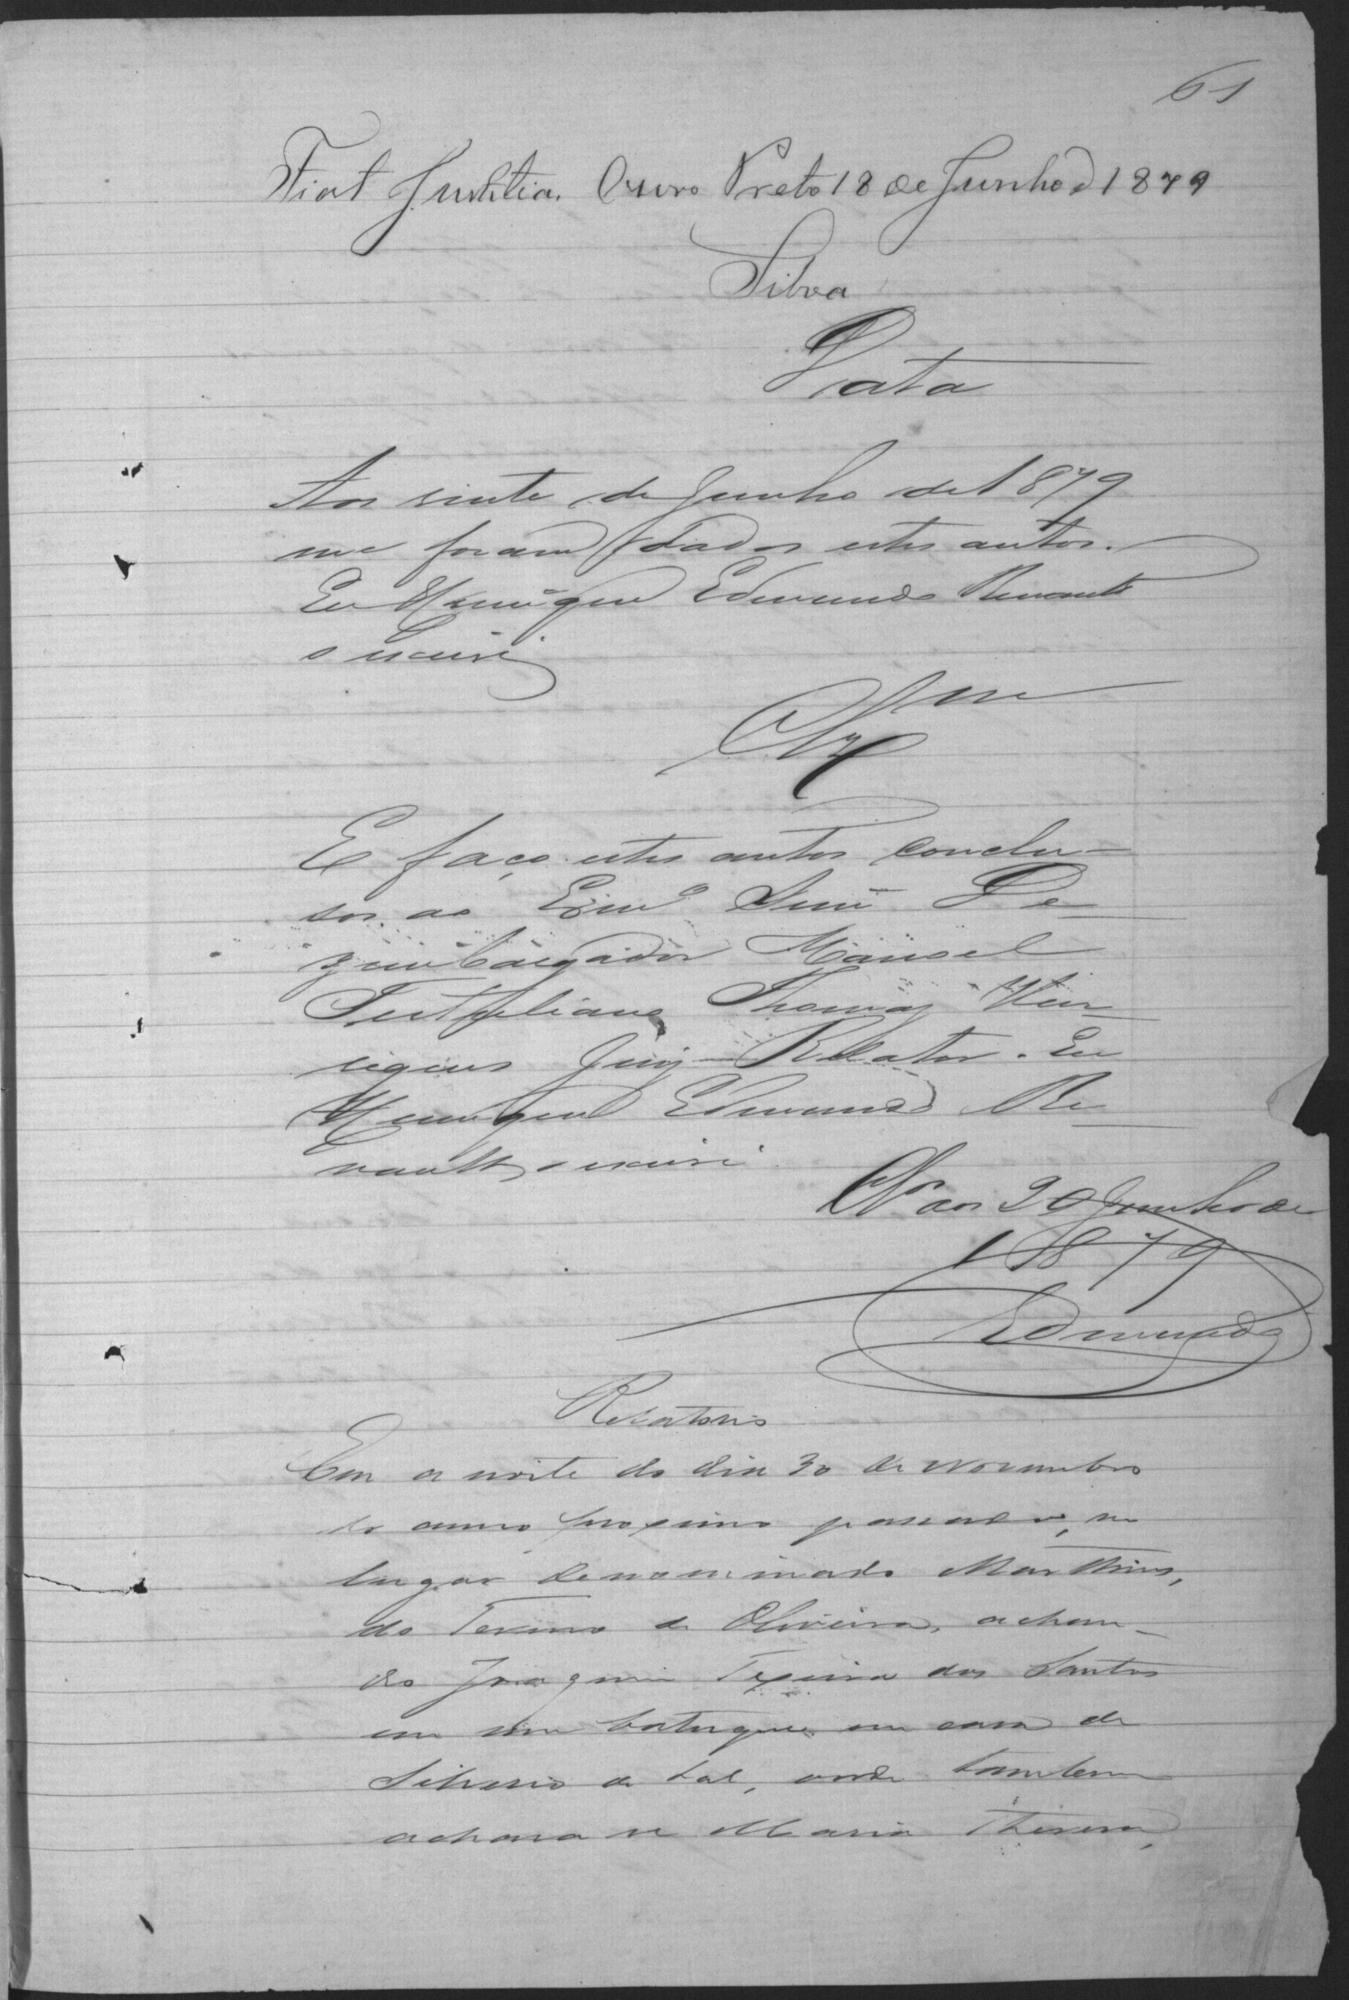 61
Fiat Justitia. Ouro Preto 18 de Junho d 1879
Silva
Data
Aos vinte de Junho de 1879
me foram dados estes autos.
Eu Edmundo Renault
o escrevi
E faço estes autos conclu-
sos ao Exmo Senr De
zembargador Manoel
Tertuliano Thomaz Hen-
riques Juiz Relator. Eu
Edmundo Re
nault o escrevi
Clos aos 20 Junho de
1879
Edmundo
Relatorio
Em a noite do dia 30 de Novembro
do anno proximo passado, no
lugar denominado Martins,
do Termo de Oliveira, achan-
do Joaquim Texeira dos Santos
em um batuque em casa de
Silverio de tal, onde tambem
achava se Maria Thereza,